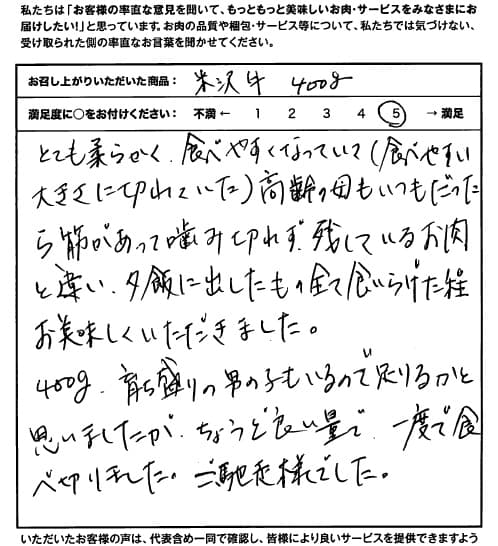 私たちは「お客様の率直な意見を聞いて、もっともっと美味しいお肉・サービスをみなさまにお
届けしたい!」と思っています。お肉の品質や梱包・サービス等について、私たちでは気づけない、
受け取られた側の率直なお言葉を聞かせてください。
お召し上がりいただいた商品: 米沢牛 400g
満足度に○をお付けください: 不満 ← 1 2 3 4 5 → 満足
とても柔らかく、食べやすくなっていて(食べやすい
大きさに切れていた)高齢の母もいつもだった
ら筋があって噛み切れず、残しているお肉
と違い、夕飯に出したもの全て食べらげた程
お美味しくいただきました。
400g、育ち盛りの男の子もいるので足りるかと
思いましたが、ちょうど良い量で、一度で食
べ切りました。ご馳走様でした。
いただいたお客様の声は、代表含め一同で確認し、皆様により良いサービスを提供できますよう